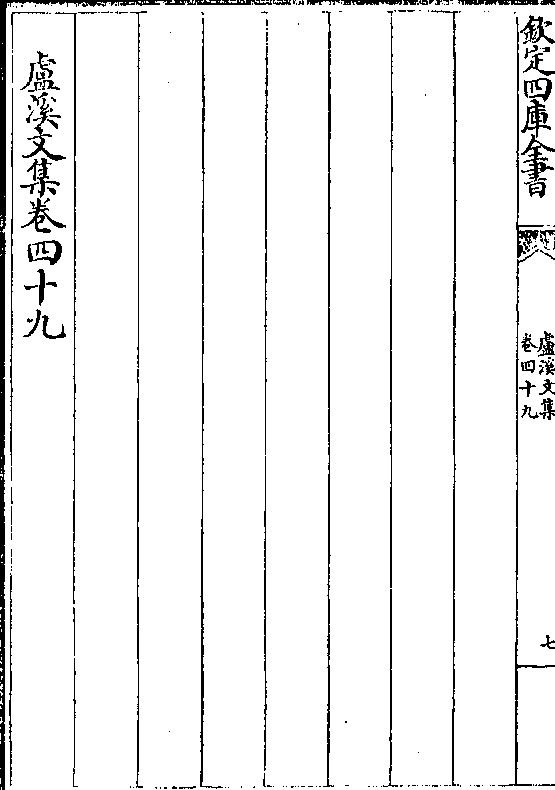 欽定四庫全書
盧溪文集
卷四十九
七
盧溪文集卷四十九